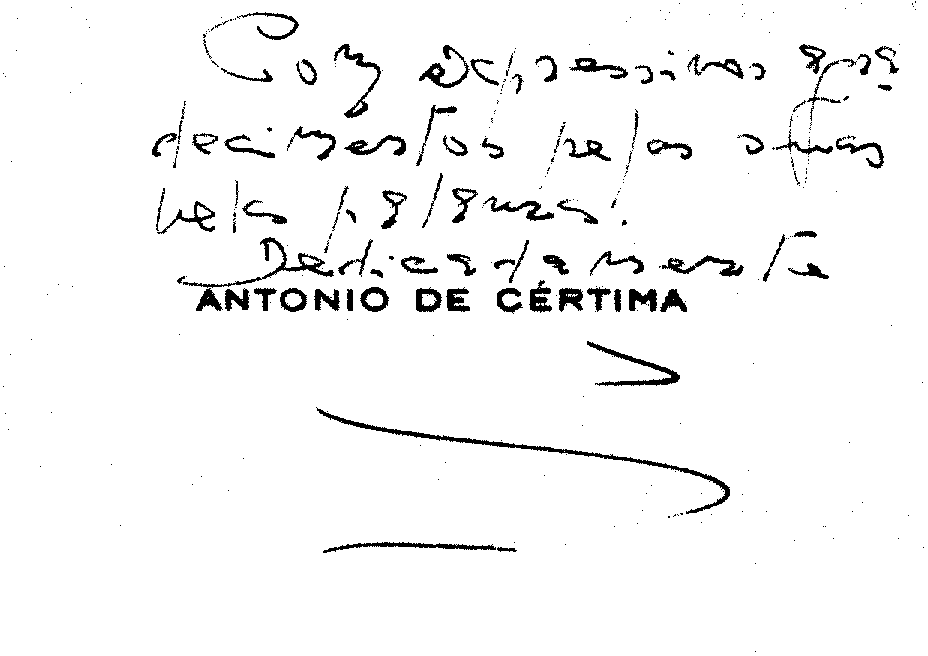 Com expressivos agra-
decimentos pelas suas
belas palavras.
Dedicadamente
ANTONIO DE CÉRTIMA